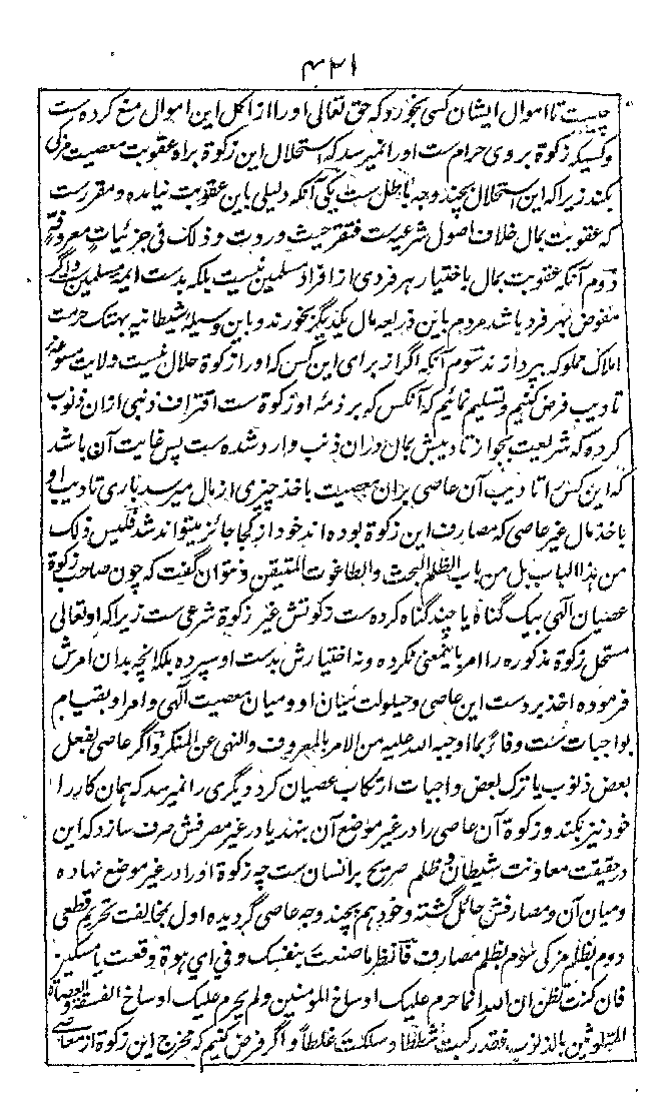 ۴۲۱
چیست تا اموال ایشان کسی بخورد که حق تعالی او را از اکل این اموال منع کرده ست
و کسیکه زکوة بر وی حرام ست او را نمیرسد که استحلال این زکوة براه عقوبت معصیت مزکی
بکند زیرا که این استحلال بچند وجه باطل ست یکی آنکه دلیلی باین عقوبت نیامده و مقررست
که عقوبت بمال خلاف اصول شرعیه ست فتقر حیث وردت و ذلک فی جزئیات معروفة
دوم آنکه عقوبت بمال باختیار هر فردی از افراد مسلمین نیست بلکه بدست ائمه مسلمین ست و اگر
مفوض بهر فرد باشد مردم باین ذریعه مال یکدیگر بخورند و باین وسیله شیطانیه بهتک حرمت
املاک مملوکه بپردازند سوم آنکه اگر از برای این کس که او را زکوة حلال نیست ولایت مسوغه
تادیب فرض کنیم و تسلیم نمائیم که آنکس که بر ذمه او زکوة ست اقتراف ذنبی ازان ذنوب
کرده که شریعت بجواز تادیبش بمال دران ذنب وارد شده ست پس غایت آن باشد
که این کس را تادیب آن عاصی بران معصیت باخذ چیزی از مال میرسد باری تادیب او
باخذ مال غیر عاصی که مصارف این زکوة بوده اند خود از کجا جائز میتواند شد فلیس ذلک
من هذا الباب بل من باب الظلم البحت والطاغوت المتیقن و نتوان گفت که چون صاحب زکوة
عصیان الهی بیک گناه یا چند گناه کرده ست زکوتش غیر زکوة شرعی ست زیرا که او تعالی
مستحل زکوة مذکوره را امر باینمعنی نکرده و نه اختیارش بدست او سپرده بلکه انچه بدان امرش
فرموده اخذ بر دست این عاصی و حیلولت میان او و میان معصیت الهی و امر او بقیام
بواجبات ست و فائز بما اوجبه الله علیه من الامر بالمعروف والنهی عن المنکر و اگر عاصی بفعل
بعض ذنوب یا ترک بعض واجبات ارتکاب عصیان کرد دیگری را نمیرسد که همان کار را
خود نیز بکند و زکوة آن عاصی را در غیر موضع آن بنهد یا در غیر مصرفش صرف سازد که این
در حقیقت معاونت شیطان و ظلم صریح بر انسان ست چه زکوة او را در غیر موضع نهاده
و میان آن و مصارفش حائل گشته و خود هم بچند وجه عاصی گردیده اول بمخالفت تحریم قطعی
دوم بظلم مزکی سوم بظلم مصارف فانظر ما صنعت بنفسک و فی ای هوة وقعت یا مسکین
فان کنت تظن ان الله انما حرم علیک اوساخ المومنین ولم یحرم علیک اوساخ الفسقة والعصاة
المتلوثین بالذنوب فقد رکبت شططا و سلکت غلطا و اگر فرض کنیم که مخرج این زکوة از معاصی